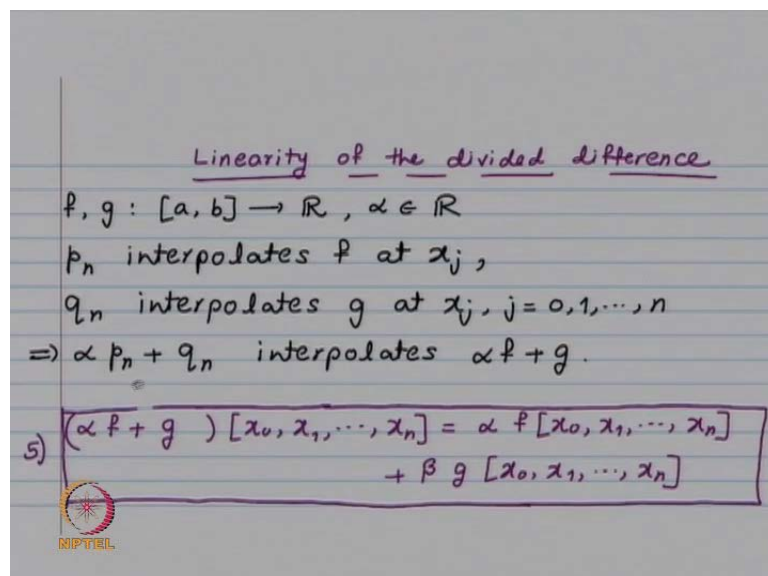 Linearity of the divided difference
f, g : [a, b] → ℝ, α ∈ ℝ
pₙ interpolates f at xⱼ,
qₙ interpolates g at xⱼ, j = 0, 1, ⋯, n
⇒ α pₙ + qₙ interpolates α f + g.
5) (α f + g ) [x₀, x₁, ⋯, xₙ] = α f [x₀, x₁, ⋯, xₙ]
+ β g [x₀, x₁, ⋯, xₙ]
NPTEL